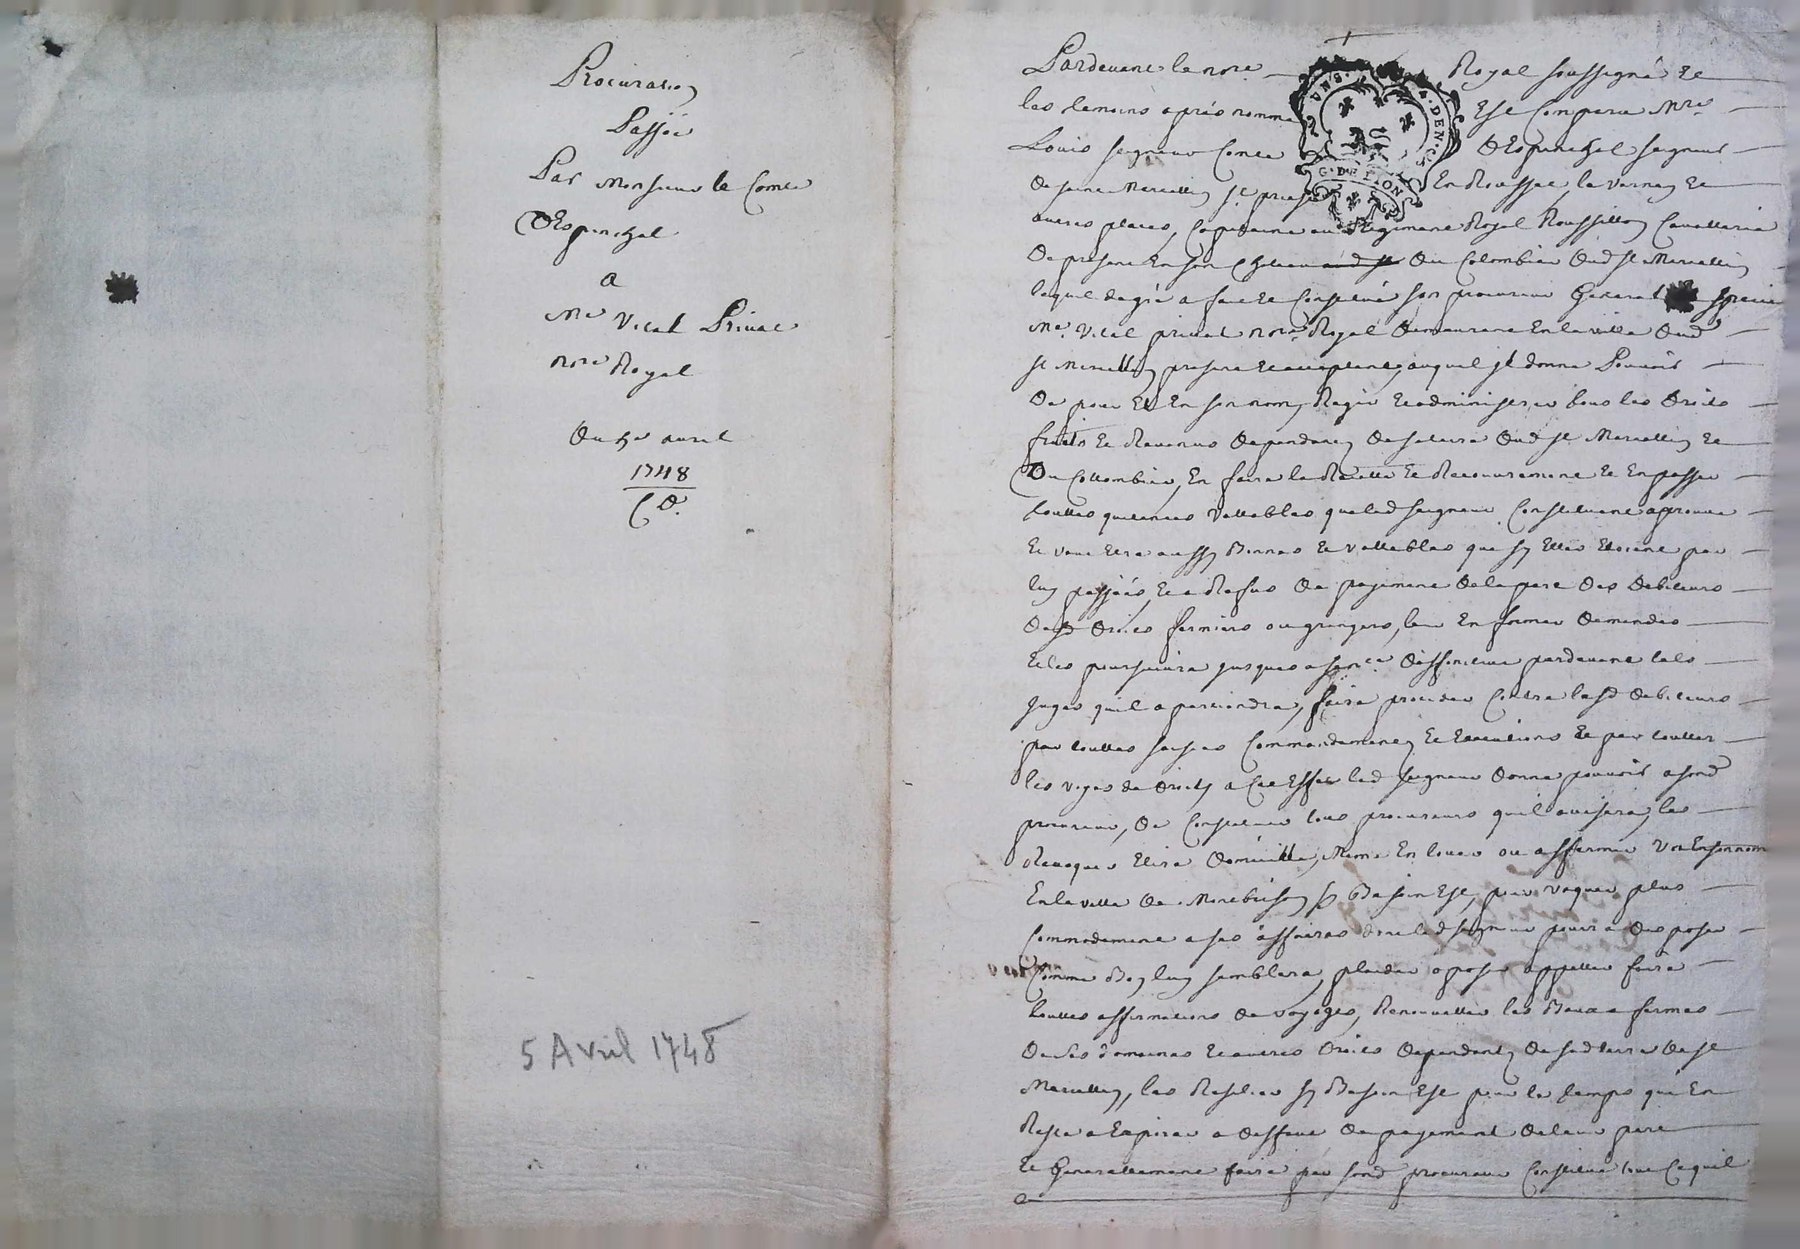 Procuration
Passée
Par Monsieur le Comte
D'Espinchal
a
Me Vital Privat
nore Royal
Du 5e avril
1748
C D.
5 Avril 1748
Pardevant le nore Royal soussigné et
UNS. DEN. CS
G. DE LION
les temoins apres nommé Est Comparu Mre
Louis seigneur Comte D'Espinchal seigneur
de saint Marcellin st priest En Roussset, le Vernay et
autres places, Capitaine au Regiment Royal Roussillon Cavallerie
De present En son Chateau du Colombier dud st Marcellin
lequel de gré a fait et Constitué son procureur General special
Me Vital privat nore Royal Demeurant En la ville dud
st Marcellin present et acceptant, auquel jl donne Pouvoir
De pour Et En son nom, Regir et administrer tous les droits
fruits et Revenus dependants de sa terre dud st Marcellin et
Du Collombier, En faire la Recette Et Recouvrement et En passer
touttes quitances Vallables que led seigneur Constituant aprouve
Et veut Etre aussy Bonnes Et vallables que sy Elles Etoient par
luy passées, et a Refus de payement de la part des debiteurs
desd droits fermiers ou grangers, leur En former demandes
et les poursuivre jusques a sentce deffinitive pardevant tels
juges quil apartiendra, faire proceder Contre lesd debiteurs
par touttes saisies Commandements et Executions Et par touttes
les voyes de droits, a Cet Effet led seigneur donne pouvoir a sond
procureur, de Constituer tous procureurs quil avisera, les
Revoquer Elire domicille, Meme En louer ou affermer Un En son nom
En la ville de Montbrison sy Besoin Est, pour vaquer plus
Commodement a ses affaires dont led seigneur pourra disposer
Comme Bon luy semblera, plaider oposer appeller faire
touttes affirmations de voyages, Renouveller les Baux a fermes
De ses domaines et autres droits dependants de sad terre de st
Marcellin, les Resilier sy Besoin Est pour le temps qui En
Reste a Expirer a deffaut de payement de leur part
et Generallement faire par sond procureur Constitué tout Ce quil